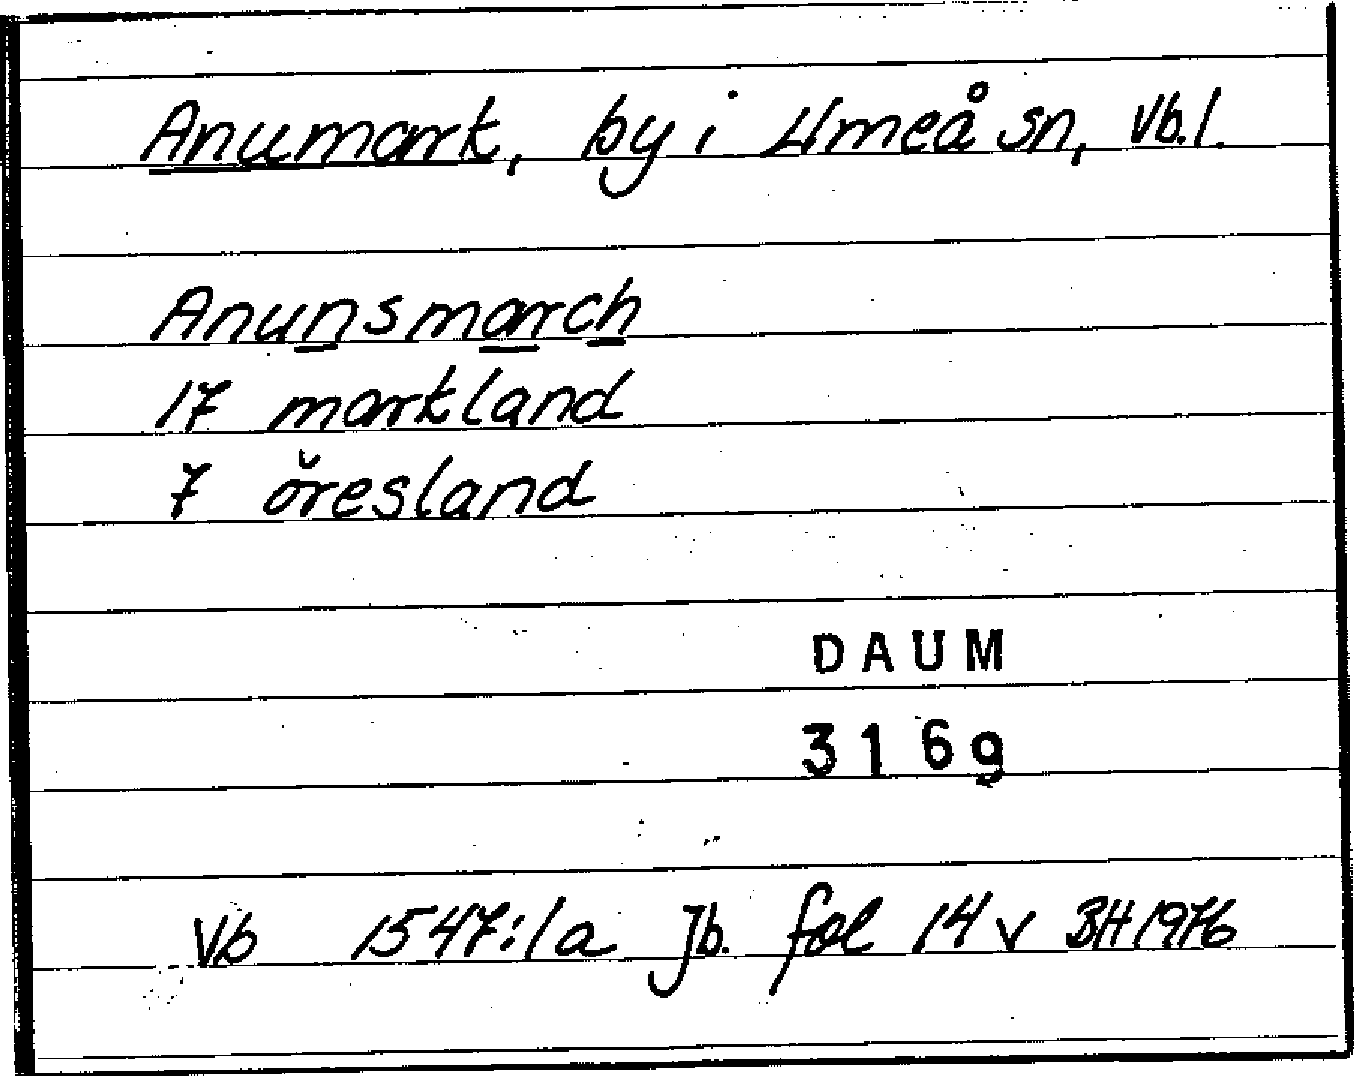 Anumark, by i Umeå sn, Vb.l.
Anunsmarch
17 markland
7 öresland
DAUM
3169
Vb 1547:1a Jb. fol 14 v BH 1976